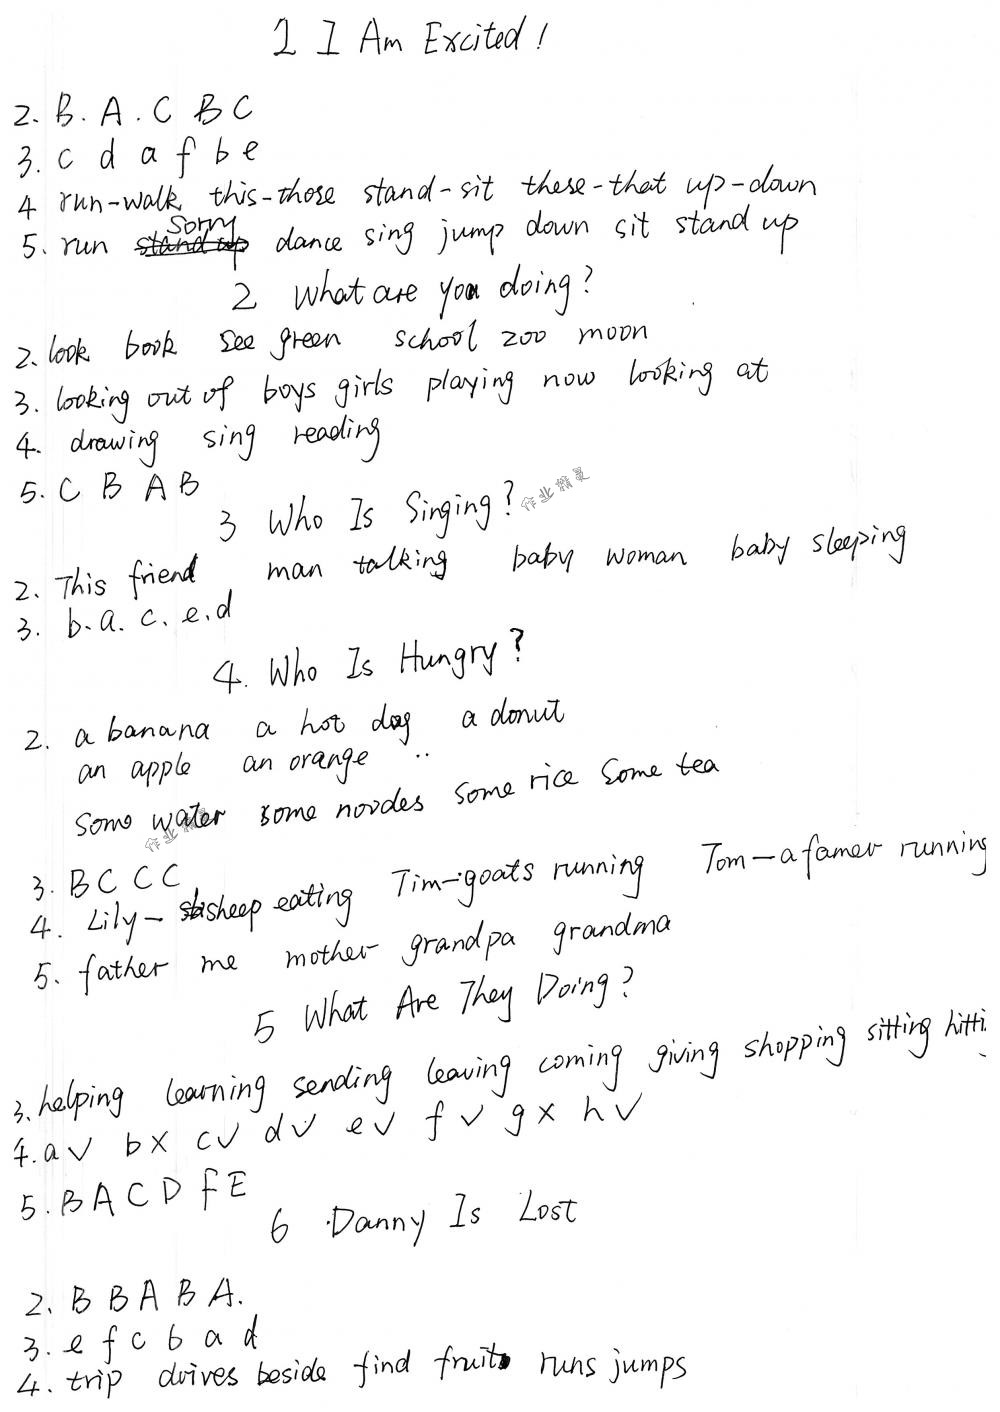 1 I Am Excited!
2. B. A. C B C
3. c d a f b e
4 run-walk this-those stand-sit these-that up-down
5. run sorry dance sing jump down sit stand up
2 What are you doing?
2. look book see green school zoo moon
3. looking out of boys girls playing now looking at
4. drawing sing reading
5. C B A B
作业精灵
3 Who Is Singing?
2. This friend man talking baby woman baby sleeping
3. b. a. c. e. d
4. Who Is Hungry?
2. a banana a hot dog a donut
an apple an orange
some water some noodes some rice some tea
作业精灵
3. B C C C
4. Lily- sheep eating Tim-goats running Tom-a famer running
5. father me mother grandpa grandma
5 What Are They Doing?
3. helping learning sending leaving coming giving shopping sitting hitti
4. a✓ b× c✓ d✓ e✓ f✓ g× h✓
5. B A C D F E
6 Danny Is Lost
2. B B A B A.
3. e f c b a d
4. trip drives beside find fruit runs jumps